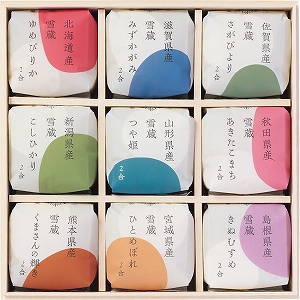 北海道産
雪蔵
ゆめぴりか
2合
滋賀県産
雪蔵
みずかがみ
2合
佐賀県産
雪蔵
さがびより
2合
新潟県産
雪蔵
こしひかり
2合
山形県産
雪蔵
つや姫
2合
秋田県産
雪蔵
あきたこまち
2合
熊本県産
雪蔵
くまさんの輝き
2合
宮城県産
雪蔵
ひとめぼれ
2合
島根県産
雪蔵
きぬむすめ
2合